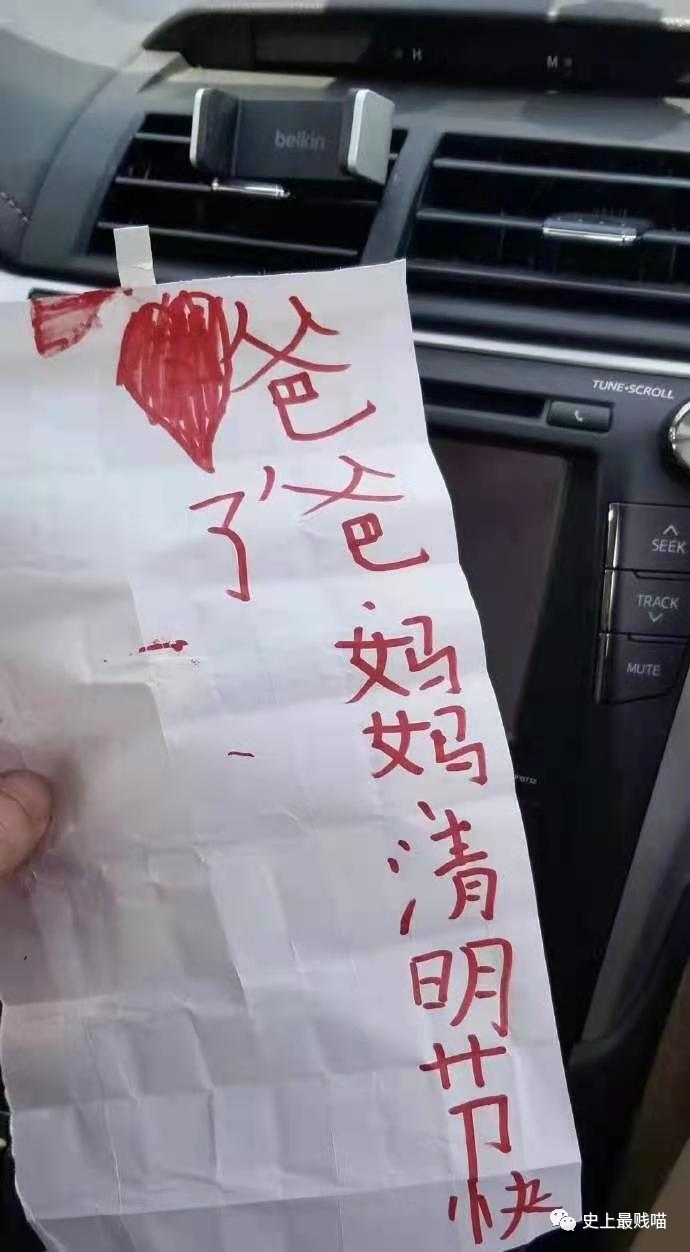 H
M
belkin
TUNE•SCROLL
SEEK
TRACK
MUTE
爸爸、妈妈清明节快
了
史上最贱喵